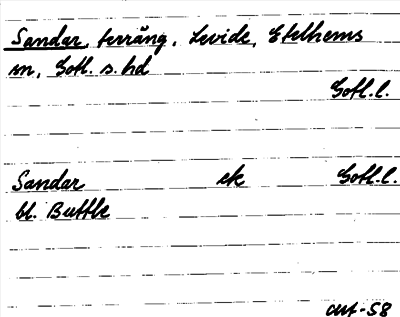 Sandar, terräng, Levide, Etelhems
sn, Gotl. s. hd
Gotl.l.
Sandar ek Gotl.l.
bl. Buttle
-58